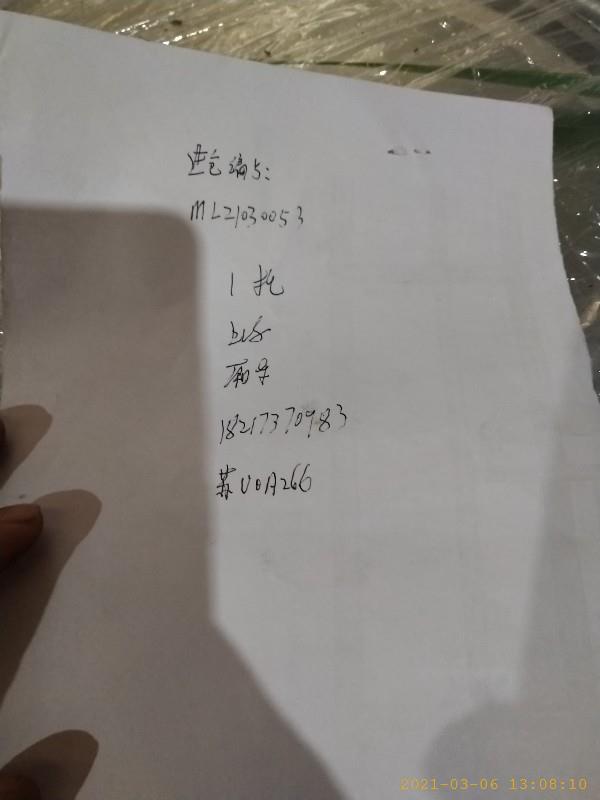 进仓编号:
ML21030053
1托
厢车
18217370983
苏U0A266
2021-03-06 13:08:10